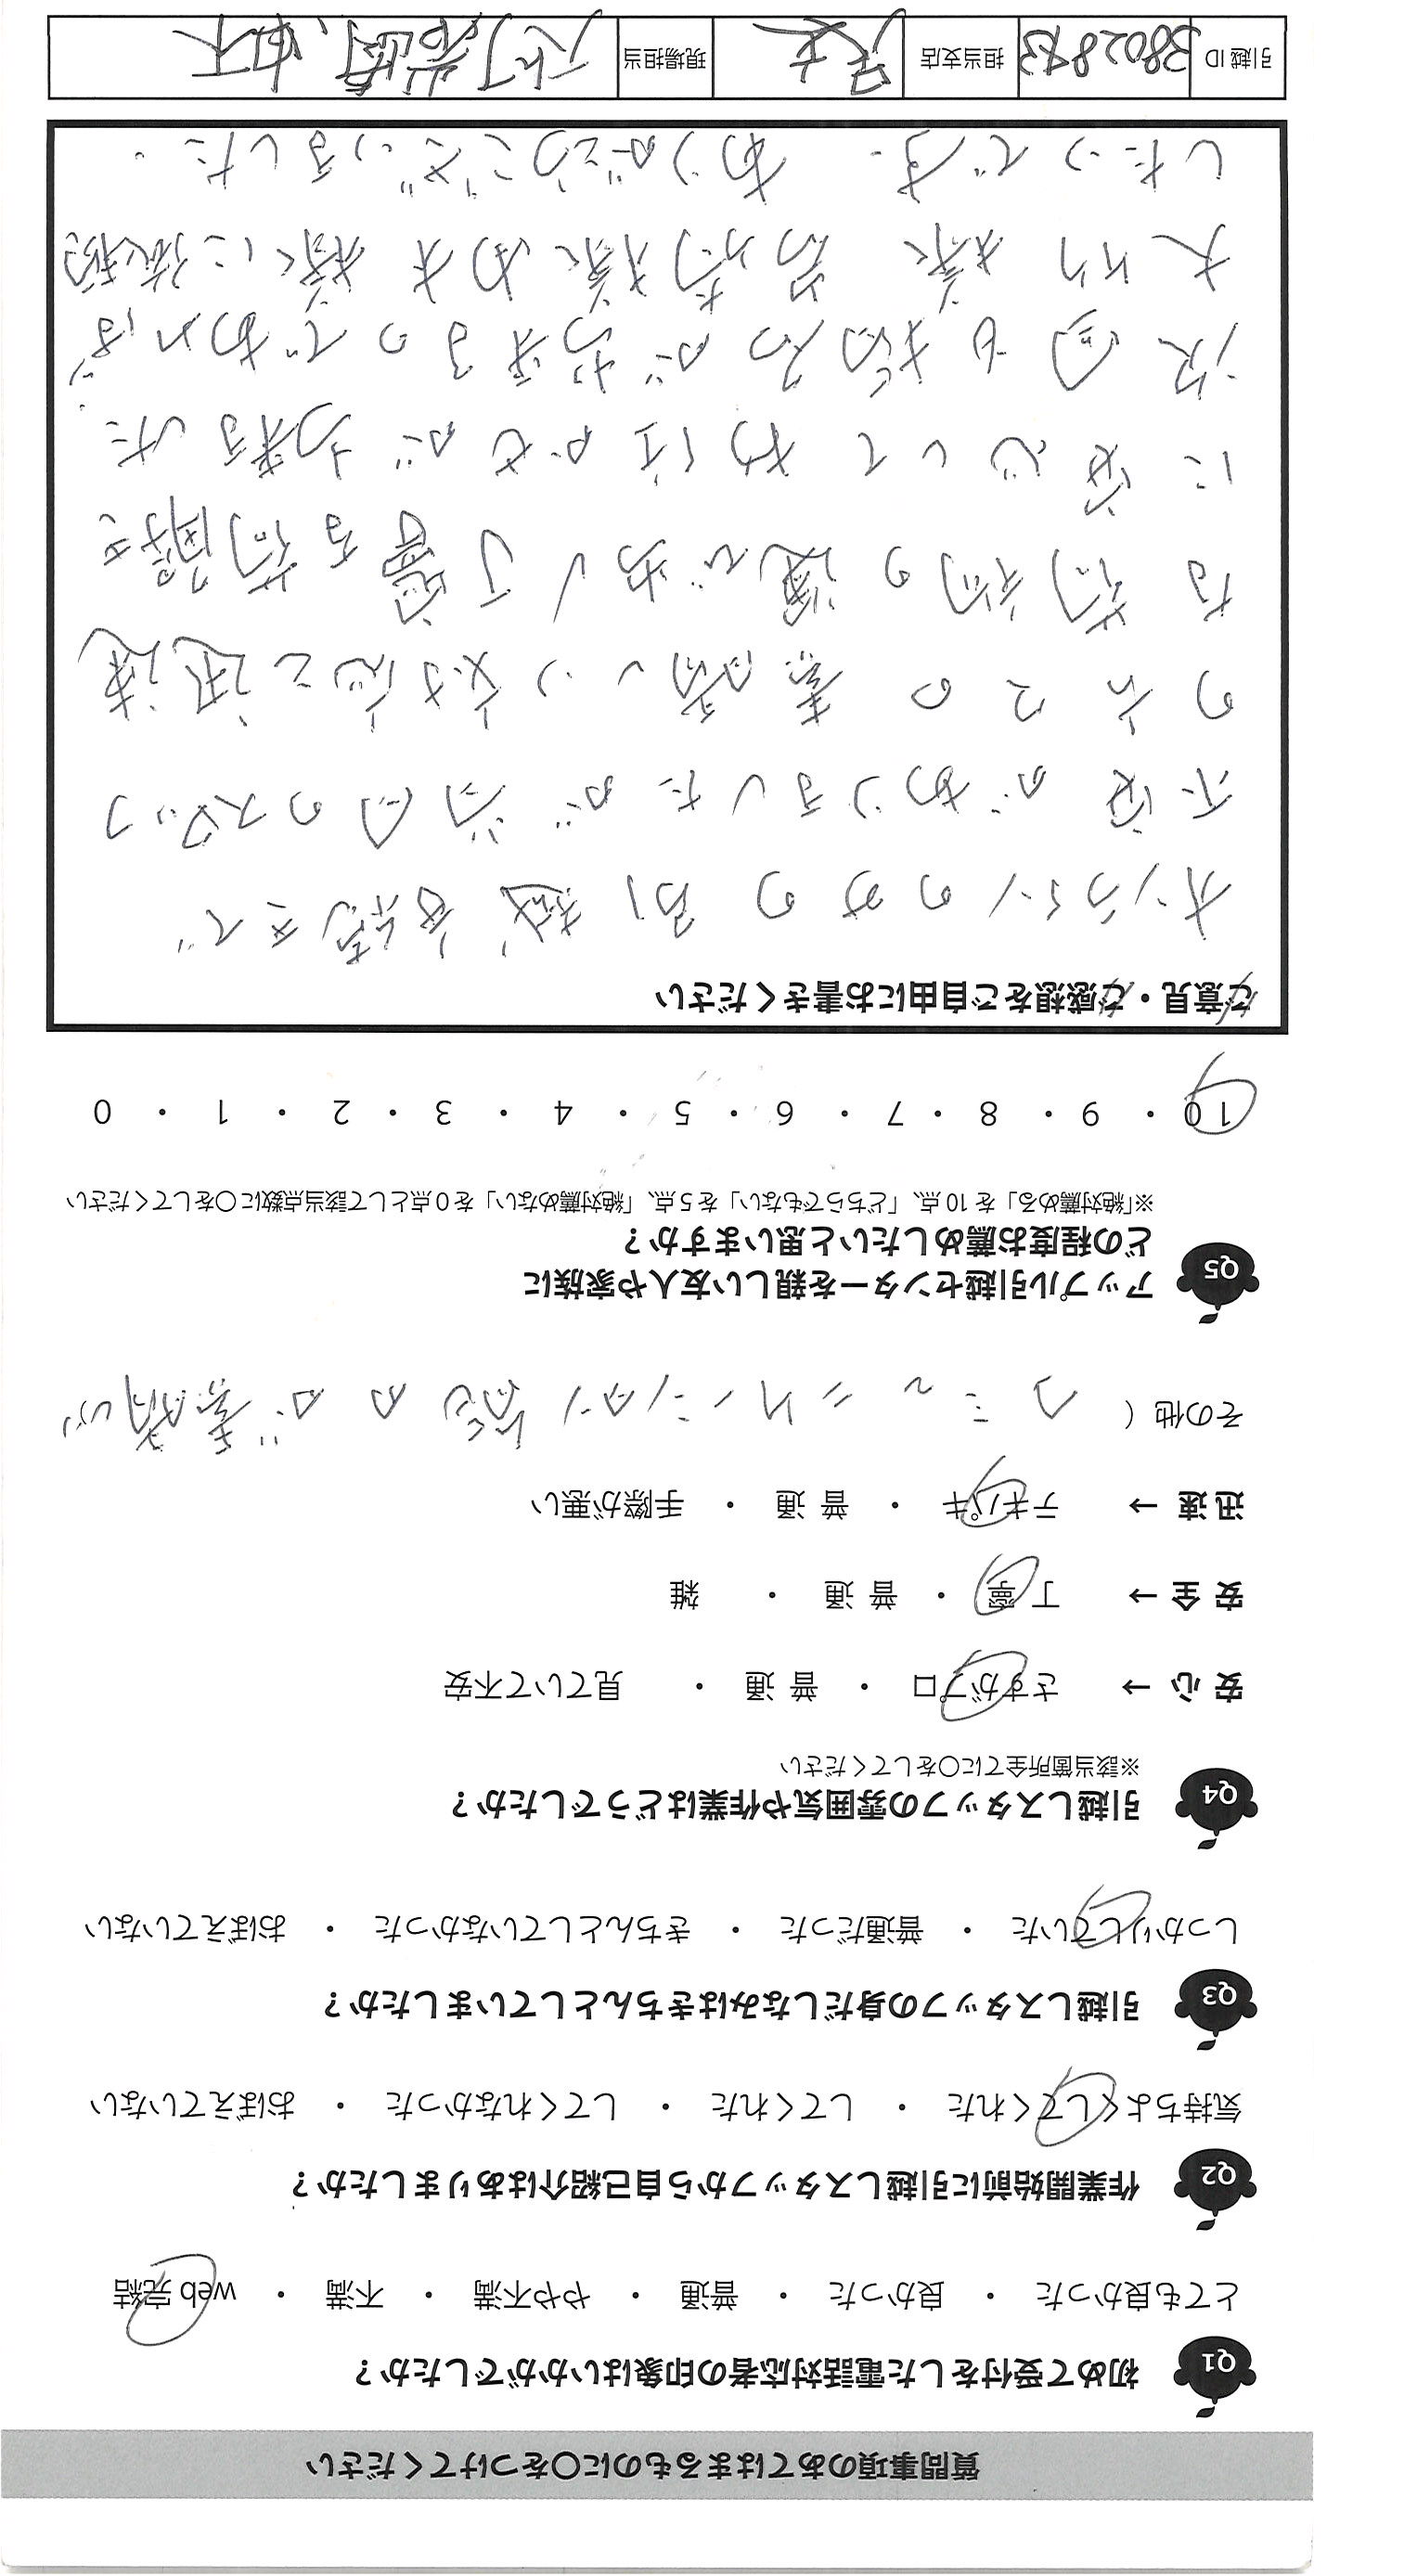 質問事項のあてはまるものに〇をつけてください
Q1 初めて受付をした電話対応者の印象はいかがでしたか？
とても良かった ・ 良かった ・ 普通 ・ やや不満 ・ 不満 ・ web 完結
Q2 作業開始前に引越しスタッフから自己紹介はありましたか？
気持ちよくしてくれた ・ してくれた ・ してくれなかった ・ おぼえていない
Q3 引越しスタッフの身だしなみはきちんとしていましたか？
しっかりしていた ・ 普通だった ・ きちんとしていなかった ・ おぼえていない
Q4 引越しスタッフの雰囲気や作業はどうでしたか？
※該当箇所全てに〇をしてください
安 心 → さすがプロ ・ 普 通 ・ 見ていて不安
安 全 → 丁 寧 ・ 普 通 ・ 雑
迅 速 → テキパキ ・ 普 通 ・ 手際が悪い
その他（ コミュニケーション能力が素晴しい
Q5 アップル引越センターを親しい友人や家族に
どの程度お薦めしたいと思いますか？
※「絶対薦める」を 10 点、「どちらでもない」を 5 点、「絶対薦めない」を 0 点として該当点数に〇をしてください
10 ・ 9 ・ 8 ・ 7 ・ 6 ・ 5 ・ 4 ・ 3 ・ 2 ・ 1 ・ 0
ご意見・ご感想をご自由にお書きください
オンラインのみの引越手続きで
不安がありましたが当日のスタッフ
の方2の素晴しい対応と迅速
な荷物の運び出し丁寧な荷解き
に安心してお任かせが出来ました
次回も指名が出来るのであれば、
大竹様 岩崎様 由木様に依頼
したいです. ありがとうございました.
引越 ID 38028973 担当支店 足立 現場担当 大竹、岩崎、由木